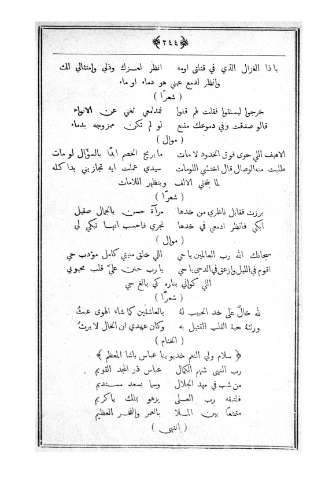 ﴿٢٤٤﴾
يا ذا الغزال الذي في قتلتي اومه انظر لعزك وذلي وامتثالي لك
وانظر لدمع عيني هو دماء او ماء
( شعراً )
خرجوا ليستقوا فقلت لهم قفوا فمدامعي تغني عن الانواء
قالوا صدقت وفي دموعك مقنع لو لم تكن ممزوجة بدماء
( موال )
الاهيف اللي حوى فوق الخدود لامات ما يربح الخصم ابداً بالسؤال لو مات
طلبت منه الوصال قال اختشي اللومات سيدي عملت ايه تجازيني بدا كله
لما يختفي الالف وينظهر اللامات
( شعراً )
برزت فقابل ناظري من خدها مرآة حسن بالجمال صقيل
ابكي فانظر ادمعي في خدها تجري فاحسب انها تبكي لي
( موال )
سبحانك الله رب العالمين يا حي اللي خلق منيتي كامل مؤدب حي
اقوم في الليل وازعق في الدجى يا حي يا رب حنن عليّ قلب محبوبي
اللي كواني بناره كي بالخ حي
( شعراً )
لله خال على خد الحبيب له بالعاشقين كما شاء الهوى عبث
ورثته حبة القلب القتيل به وكان عهدي ان الخال لا يرث
( الختام )
﴿ سلام ولي النعم خديوينا عباس باشا المعظم ﴾
رب النهى شهم الكمال عباس قدر المجد القويم
من شب في مهد الجلال وسما بسعد مستديم
فلتبقه رب العلى يزهو بملك يا كريم
ممتعاً بين الملا بالعمر والفخر العظيم
( انتهى )